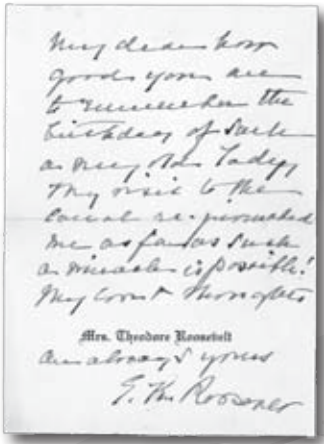 My dear how
good you are
to remember the
birthday of such
an very old lady,
My visit to the
canal re-juvenated
me as far as such
a miracle is possible!
My loving thoughts
Mrs. Theodore Roosevelt
are always yours
E. K. Roosevelt